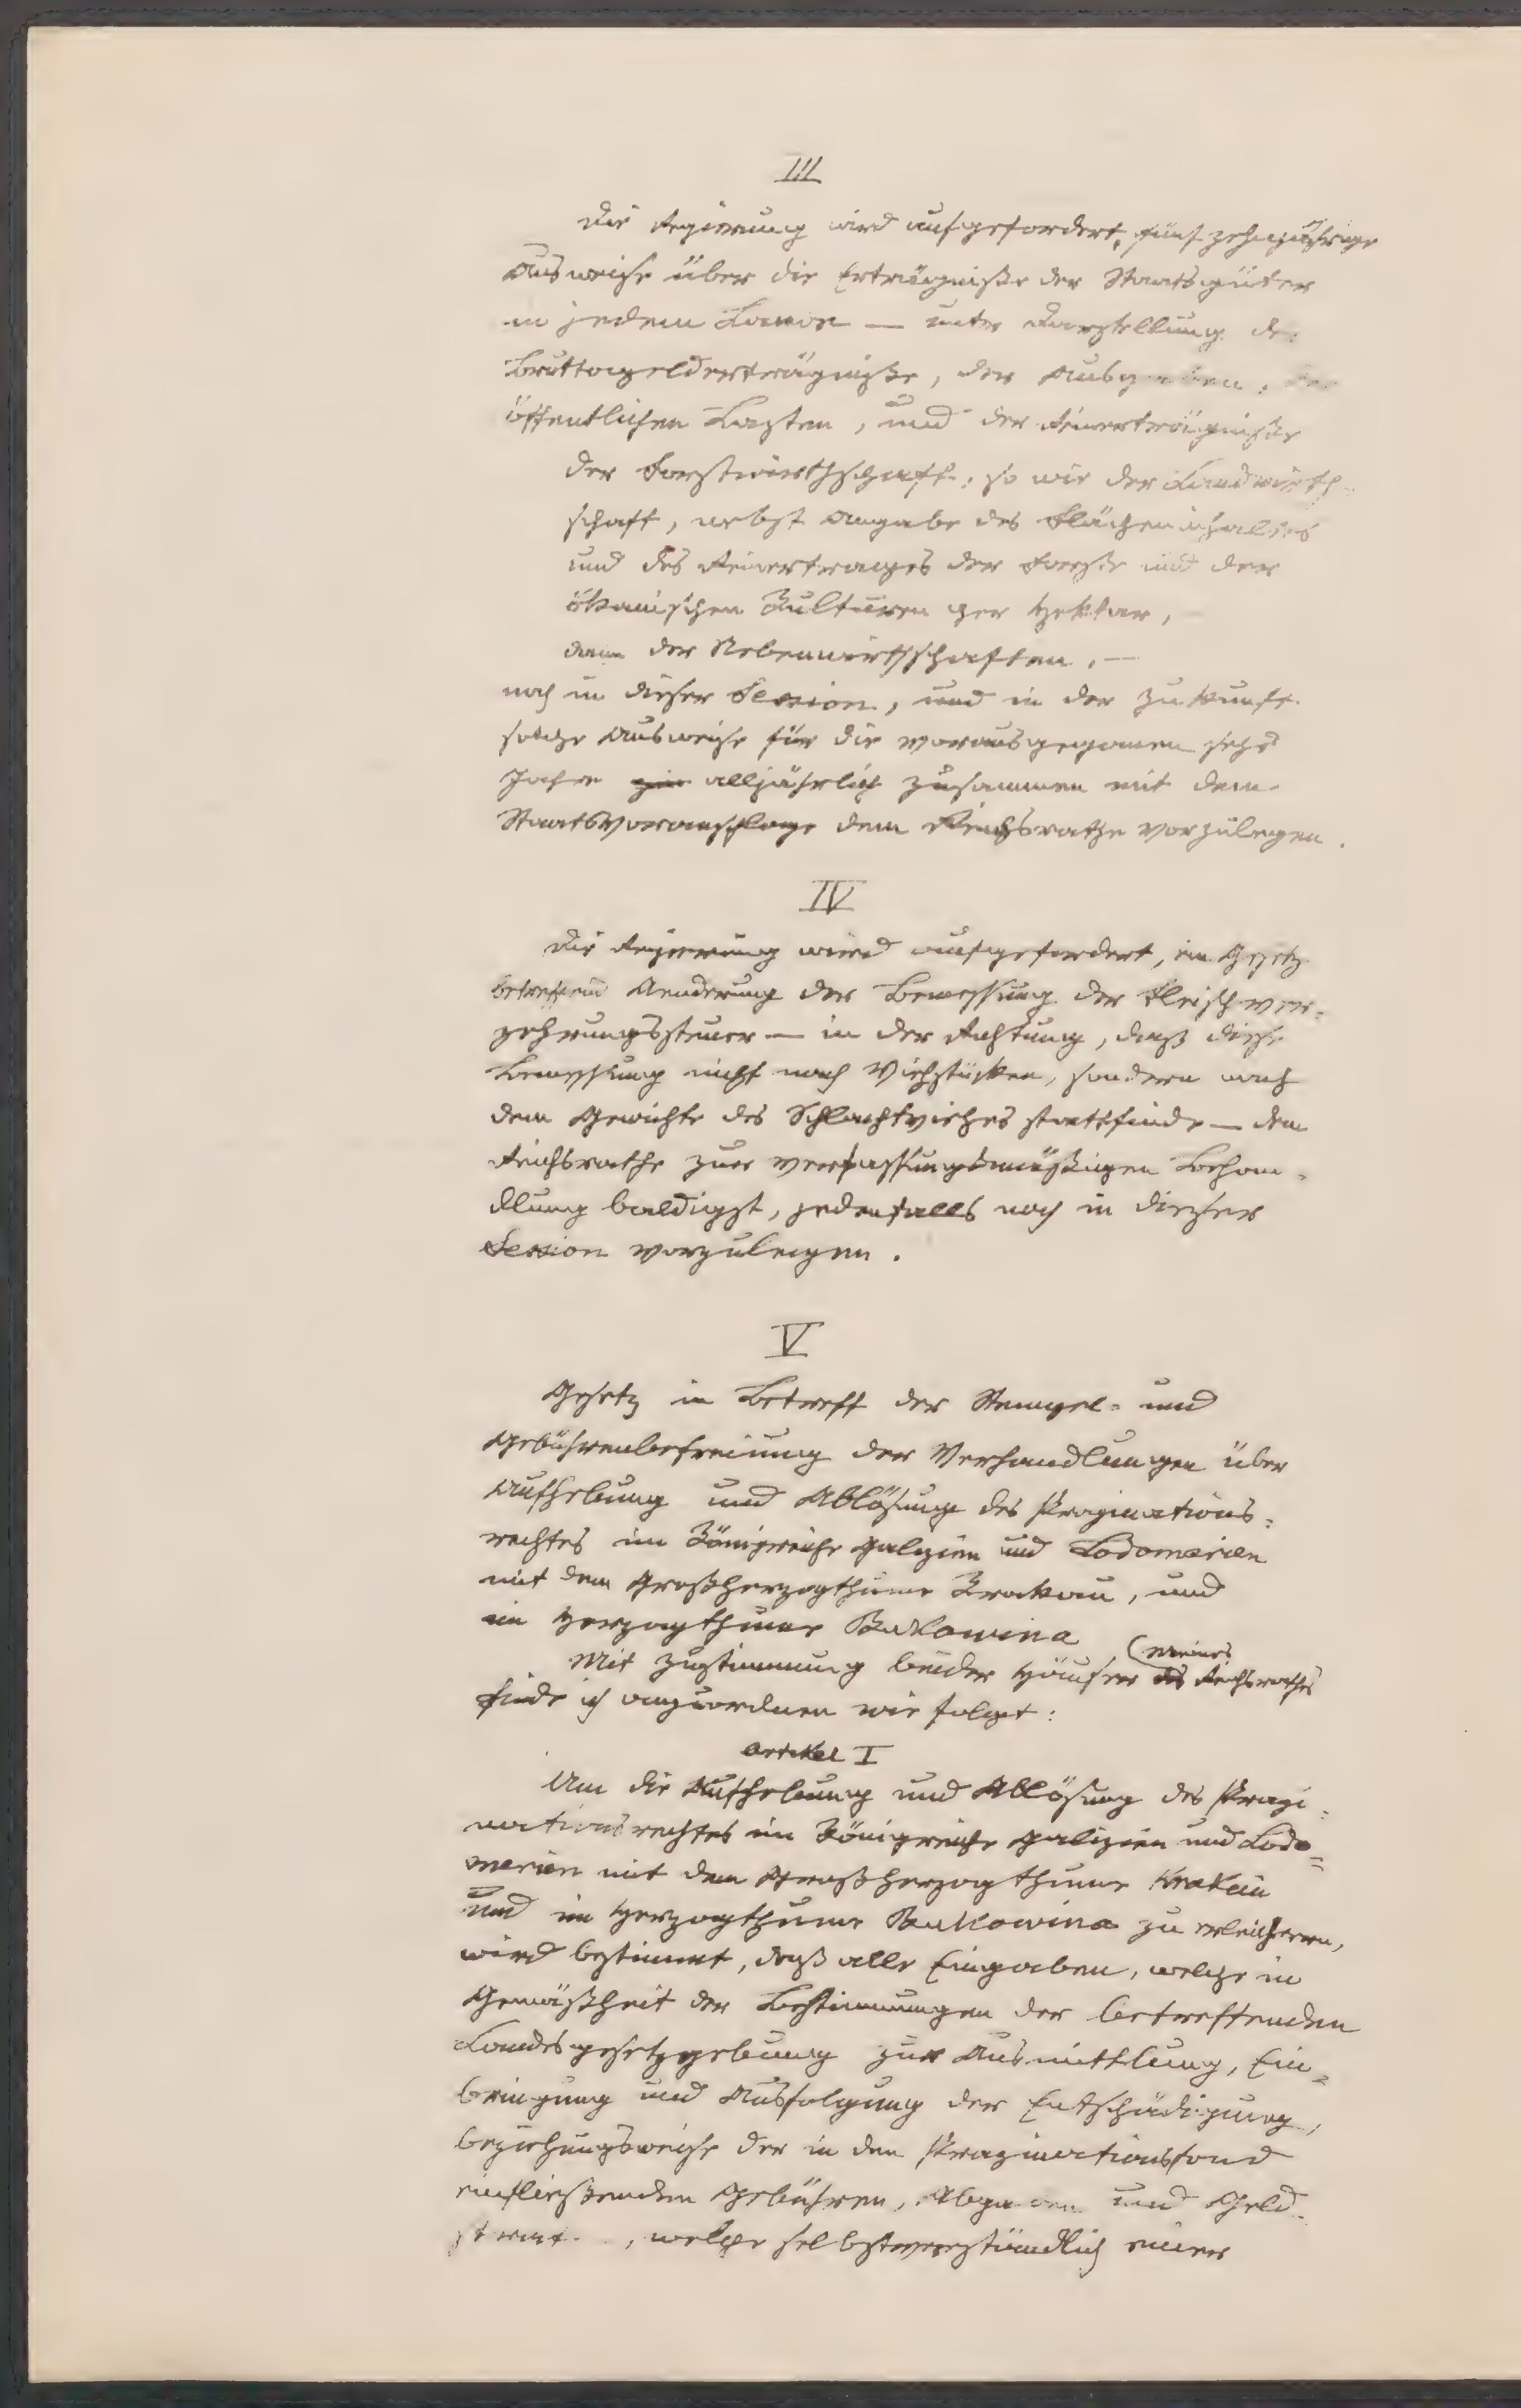 III
Die Regierung wird aufgefordert, fünfzehnjährige
Ausweise über die Erträgniße der Staatsgüter
in jedem Lande — unter Darstellung der
Bruttogelderträgniße, der Ausgaben, der
öffentlichen Lasten, und der Reinerträgniße
der Forstwirthschaft, so wie der Landwirth-
schaft, nebst Angabe des Flächeninhaltes
und des Reinertrages der Forste und der
ökonischen Kulturen per Hektar, —
dann der Nebenwirthschaften, —
noch in dieser Session, und in der Zukunft
solche Ausweise für die vorausgegangenen sechs
Jahre alljährlich zusammen mit dem
Staatsvoranschlage dem Reichsrathe vorzulegen.
IV
Die Regierung wird aufgefordert, ein Gesetz
betreffend Aenderung der Bemessung der Fleischver=
zehrungssteuer — in der Richtung, daß diese
Bemessung nicht nach Viehstücken, sondern nach
dem Gewichte des Schlachtviehes stattfinde — dem
Reichsrathe zur verfassungsmäßigen Behan=
dlung baldigst, jedenfalls noch in dieser
Session vorzulegen.
V
Gesetz in Betreff der Stempel= und
Gebührenbefreiung der Verhandlungen über
Aufhebung und Ablösung des Propinations=
rechtes im Königreiche Galizien und Lodomerien
mit dem Großherzogthume Krakau, und
im Herzogthume Bukowina
Mit Zustimmung beider Häuser meines Reichsrathes
finde ich anzuordnen wie folgt:
Artikel I
Um die Aufhebung und Ablösung des Propi=
nationsrechtes im Königreiche Galizien und Lodo=
merien mit dem Großherzogthume Krakau
und im Herzogthume Bukowina zu erleichtern,
wird bestimmt, daß alle Eingaben, welche in
Gemäßheit der Bestimmungen der betreffenden
Landesgesetzgebung zur Ausmittlung, Ein=
bringung und Ausfolgung der Entschädigung,
beziehungsweise der in den Propinationsfond
einfließenden Gebühren, Abgaben und Geld-
, welche selbstverständlich einer